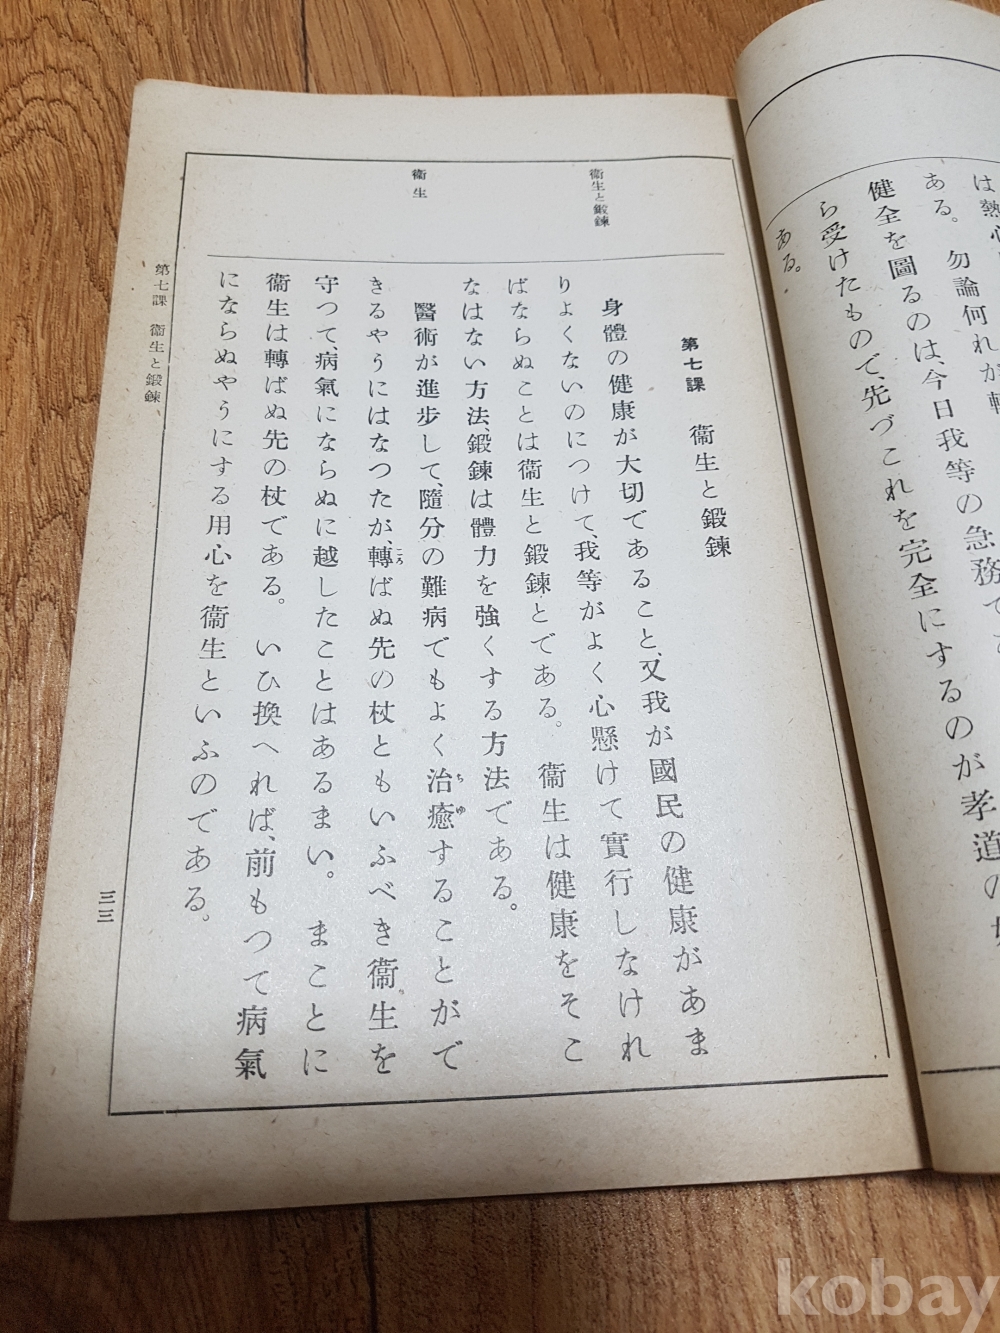 は熱心
ある。勿論何れが
健全を圖るのは、今日我等の急務で
ら受けたもので、先づこれを完全にするのが孝道の
ある。
衞生と鍛鍊
衞生
第七課 衞生と鍛鍊
身體の健康が大切であること、又我が國民の健康があま
りよくないのにつけて、我等がよく心懸けて實行しなけれ
ばならぬことは衞生と鍛鍊とである。衞生は健康をそこ
なはない方法、鍛鍊は體力を強くする方法である。
醫術が進步して、隨分の難病でもよく治癒(ちゆ)することがで
きるやうにはなつたが、轉(ころ)ばぬ先の杖ともいふべき衞生を
守つて、病氣にならぬに越したことはあるまい。まことに
衞生は轉ばぬ先の杖である。いひ換へれば、前もつて病氣
にならぬやうにする用心を衞生といふのである。
第七課 衞生と鍛鍊
三三
kobay